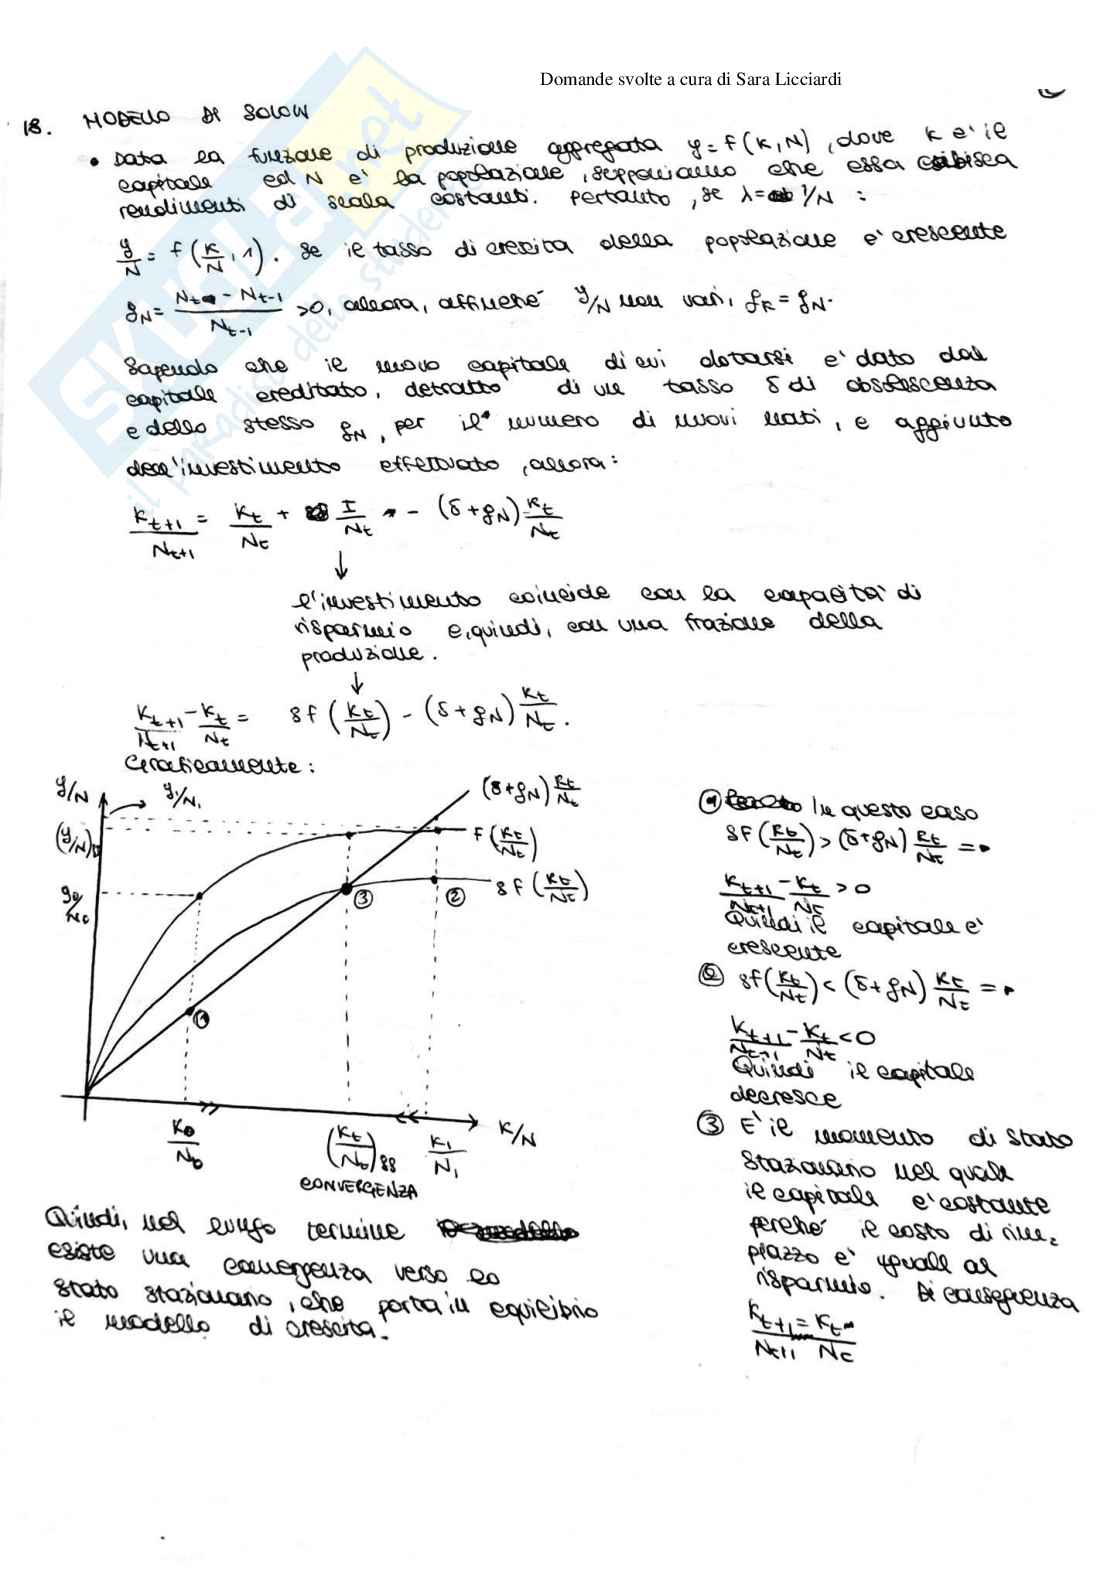 Domande svolte a cura di Sara Licciardi
18. MODELLO DI SOLOW
• Data la funzione di produzione aggregata y = f(K,N), dove K è il
capitale ed N è la popolazione, supponiamo che essa esibisca
rendimenti di scala costanti. Pertanto, se λ = 1/N :
y/N = f(K/N, 1). Se il tasso di crescita della popolazione è crescente
gN = (Nt - Nt-1)/Nt-1 > 0, allora, affinché y/N non vari, gK = gN.
Sapendo che il nuovo capitale di cui dotarsi è dato dal
capitale ereditato, detratto di un tasso δ di obsolescenza
e dello stesso gN, per il numero di nuovi nati, e aggiunto
dell'investimento effettuato, allora:
Kt+1/Nt+1 = Kt/Nt + I/Nt - (δ+gN) Kt/Nt
↓
l'investimento coincide con la capacità di
risparmio e, quindi, con una frazione della
produzione.
↓
Kt+1/Nt+1 - Kt/Nt = sf(Kt/Nt) - (δ+gN) Kt/Nt.
Graficamente:
y/N
y1/N1
(δ+gN) Kt/Nt
f(Kt/Nt)
sf(Kt/Nt)
y0/N0
①
②
③
K0/N0
(Kt/Nt)ss
K1/N1
K/N
CONVERGENZA
① In questo caso
sf(Kt/Nt) > (δ+gN) Kt/Nt =>
Kt+1/Nt+1 - Kt/Nt > 0
Quindi il capitale è
crescente
② sf(Kt/Nt) < (δ+gN) Kt/Nt =>
Kt+1/Nt+1 - Kt/Nt < 0
Quindi il capitale
decresce
③ È il momento di stato
stazionario nel quale
il capitale è costante
perché il costo di rim-
piazzo è uguale al
risparmio. Di conseguenza
Kt+1/Nt+1 = Kt/Nt
Quindi, nel lungo termine
esiste una convergenza verso lo
stato stazionario, che porta in equilibrio
il modello di crescita.
SKUOLA.net
il paradiso dello studente